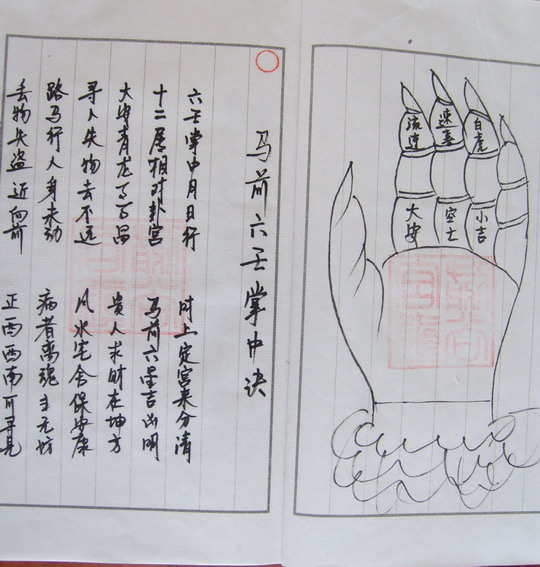 流连 速喜 白虎
大安 空士 小吉
马前六壬掌中诀
六壬掌中月日行 时上定宫来分清
十二属相对卦宫 马前六星吉凶明
大安青龙 百昌 贵人求财在坤方
寻人失物去不远 风水宅舍保安康
路马行人身未动 病者离魂主无坊
丢物失盗近向前 正南西南可寻见